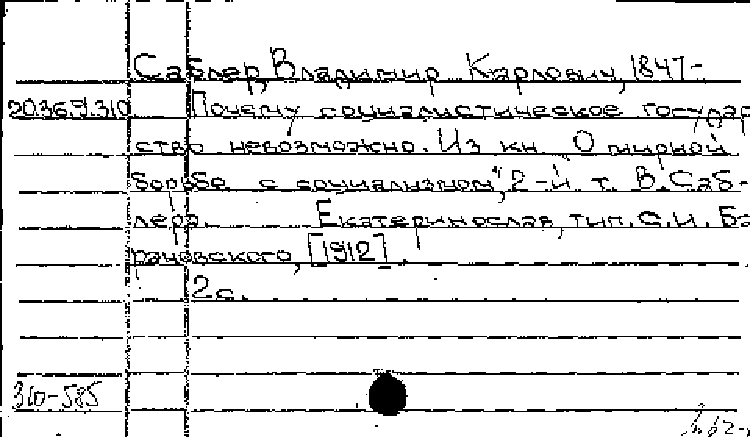 Саблер, Владимир Карлович, 1847-
20.36.7.310 Почему социалистическое государ
ство невозможно. Из кн. О мирной
борьбе с социализмом", 2-й т. В. Саб-
лера. Екатеринослав, тип. С.И. Ба
рановского, [1912].
2 с.
310-585